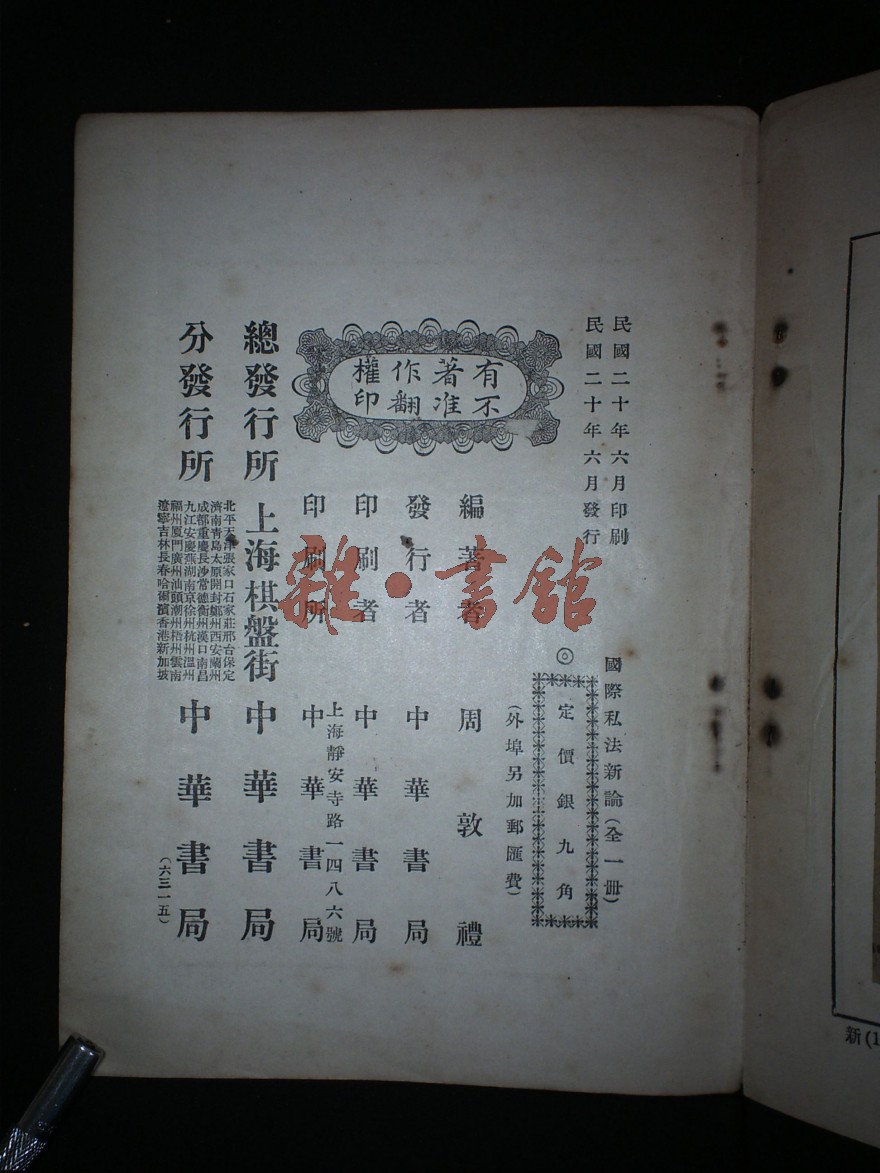 民國二十年六月印刷
民國二十年六月發行
有著作權
不准翻印
國際私法新論(全一冊)
◎定價銀九角
(外埠另加郵匯費)
編著者 周敦禮
發行者 中華書局
印刷者 中華書局
上海靜安寺路一四八六號
印刷所 中華書局
總發行所 上海棋盤街 中華書局
分發行所
北平天津張家口石家莊邢台保定
濟南青島太原開封鄭州西安蘭州
成都重慶長沙常德衡州漢口南昌
九江安慶蕪湖南京徐州杭州溫州
福州厦門廣州汕頭潮州梧州雲南
遼寧吉林長春哈爾濱香港新加坡
中華書局
(六三一五)
雜·書館
新(1